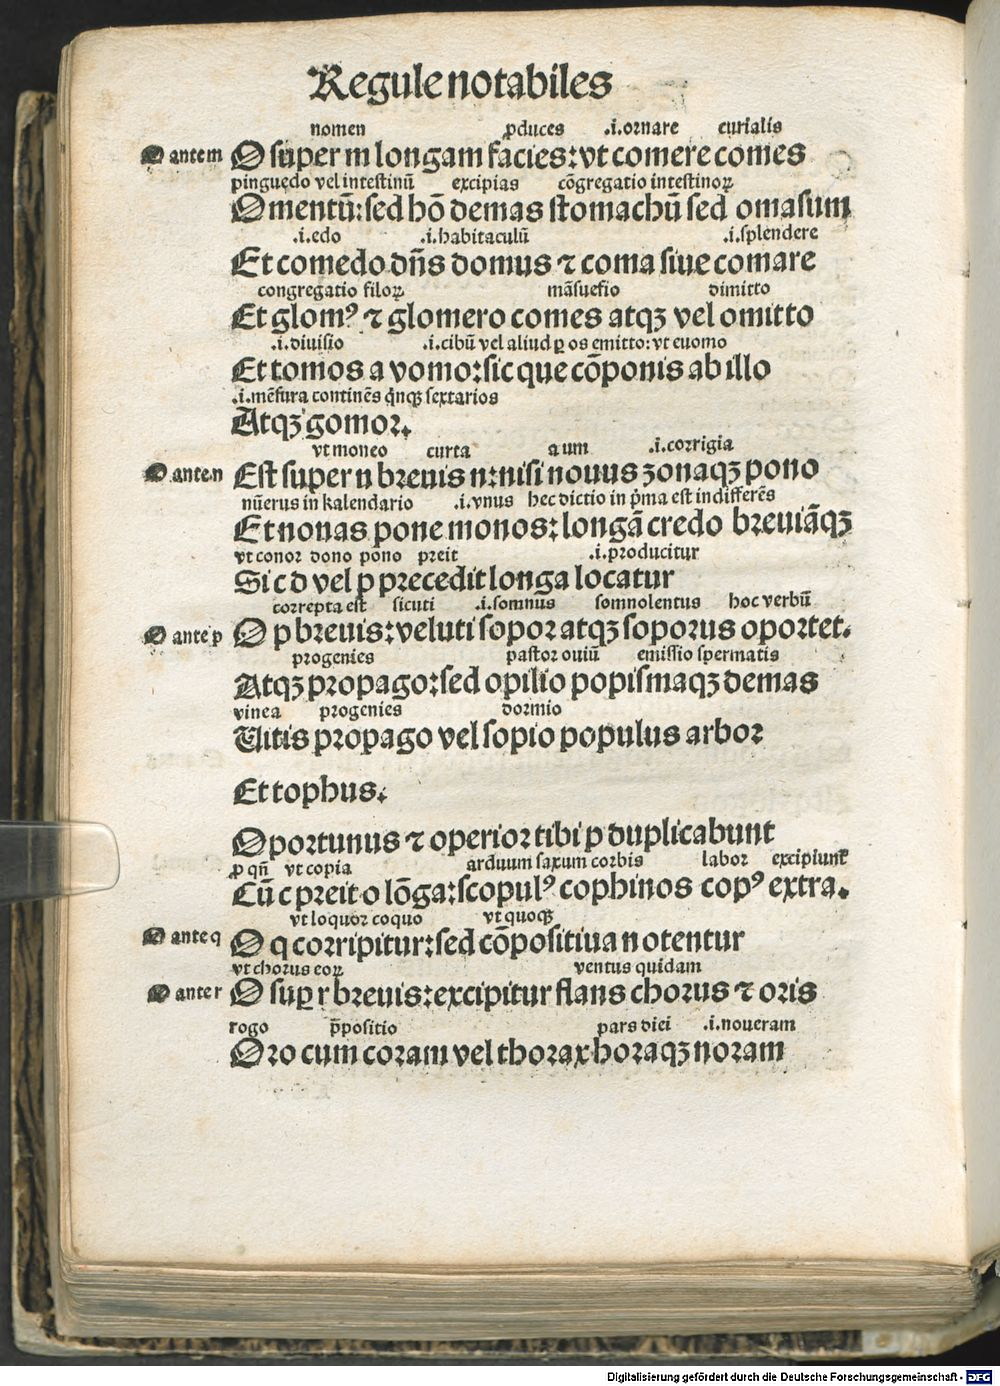 Regule notabiles
nomen ꝓduces .i.ornare curialis
O ante m O super m longam facies: vt comere comes
pinguedo vel intestinū excipias cōgregatio intestinoꝝ
Omentū: sed hō demas stomachū sed omasum
.i.edo .i.habitaculū .i.splendere
Et comedo dn̄s domus ⁊ coma siue comare
congregatio filoꝝ māsuefio dimitto
Et glomꝰ ⁊ glomero comes atqꝫ vel omitto
.i.diuisio .i.cibū vel aliud ꝑ os emitto: vt euomo
Et tomos a vomo: sic que cōponis ab illo
.i.mēsura continēs qͥnqꝫ sextarios
Atqꝫ gomor.
vt moneo curta a um .i.corrigia
O ante n Est super n breuis n: nisi nouus zonaqꝫ pono
nūerus in kalendario .i.vnus hec dictio in pͥma est indifferēs
Et nonas pone monos: longā credo breuiāqꝫ
vt conor dono pono preit .i.producitur
Si c d vel p precedit longa locatur
correpta est sicuti .i.somnus somnolentus hoc verbū
O ante p O p breuis: veluti sopor atqꝫ soporus oportet.
progenies pastor ouiū emissio spermatis
Atqꝫ propago: sed opilio popismaqꝫ demas
vinea progenies dormio
Uitis propago vel sopio populus arbor
Et tophus.
Oportunus ⁊ operior tibi p duplicabunt
ꝓ qn̄ vt copia arduum saxum corbis labor excipiunt᷑
Cū c preit o lōga: scopulꝰ cophinos copꝰ extra.
vt loquor coquo vt quoqꝫ
O ante q O q corripitur: sed cōpositiua notentur
vt chorus eoꝝ ventus quidam
O ante r O suꝑ r breuis: excipitur flans chorus ⁊ oris
rogo p̄positio pars diei .i.noueram
Oro cum coram vel thorax horaqꝫ noram
Digitalisierung gefördert durch die Deutsche Forschungsgemeinschaft - DFG